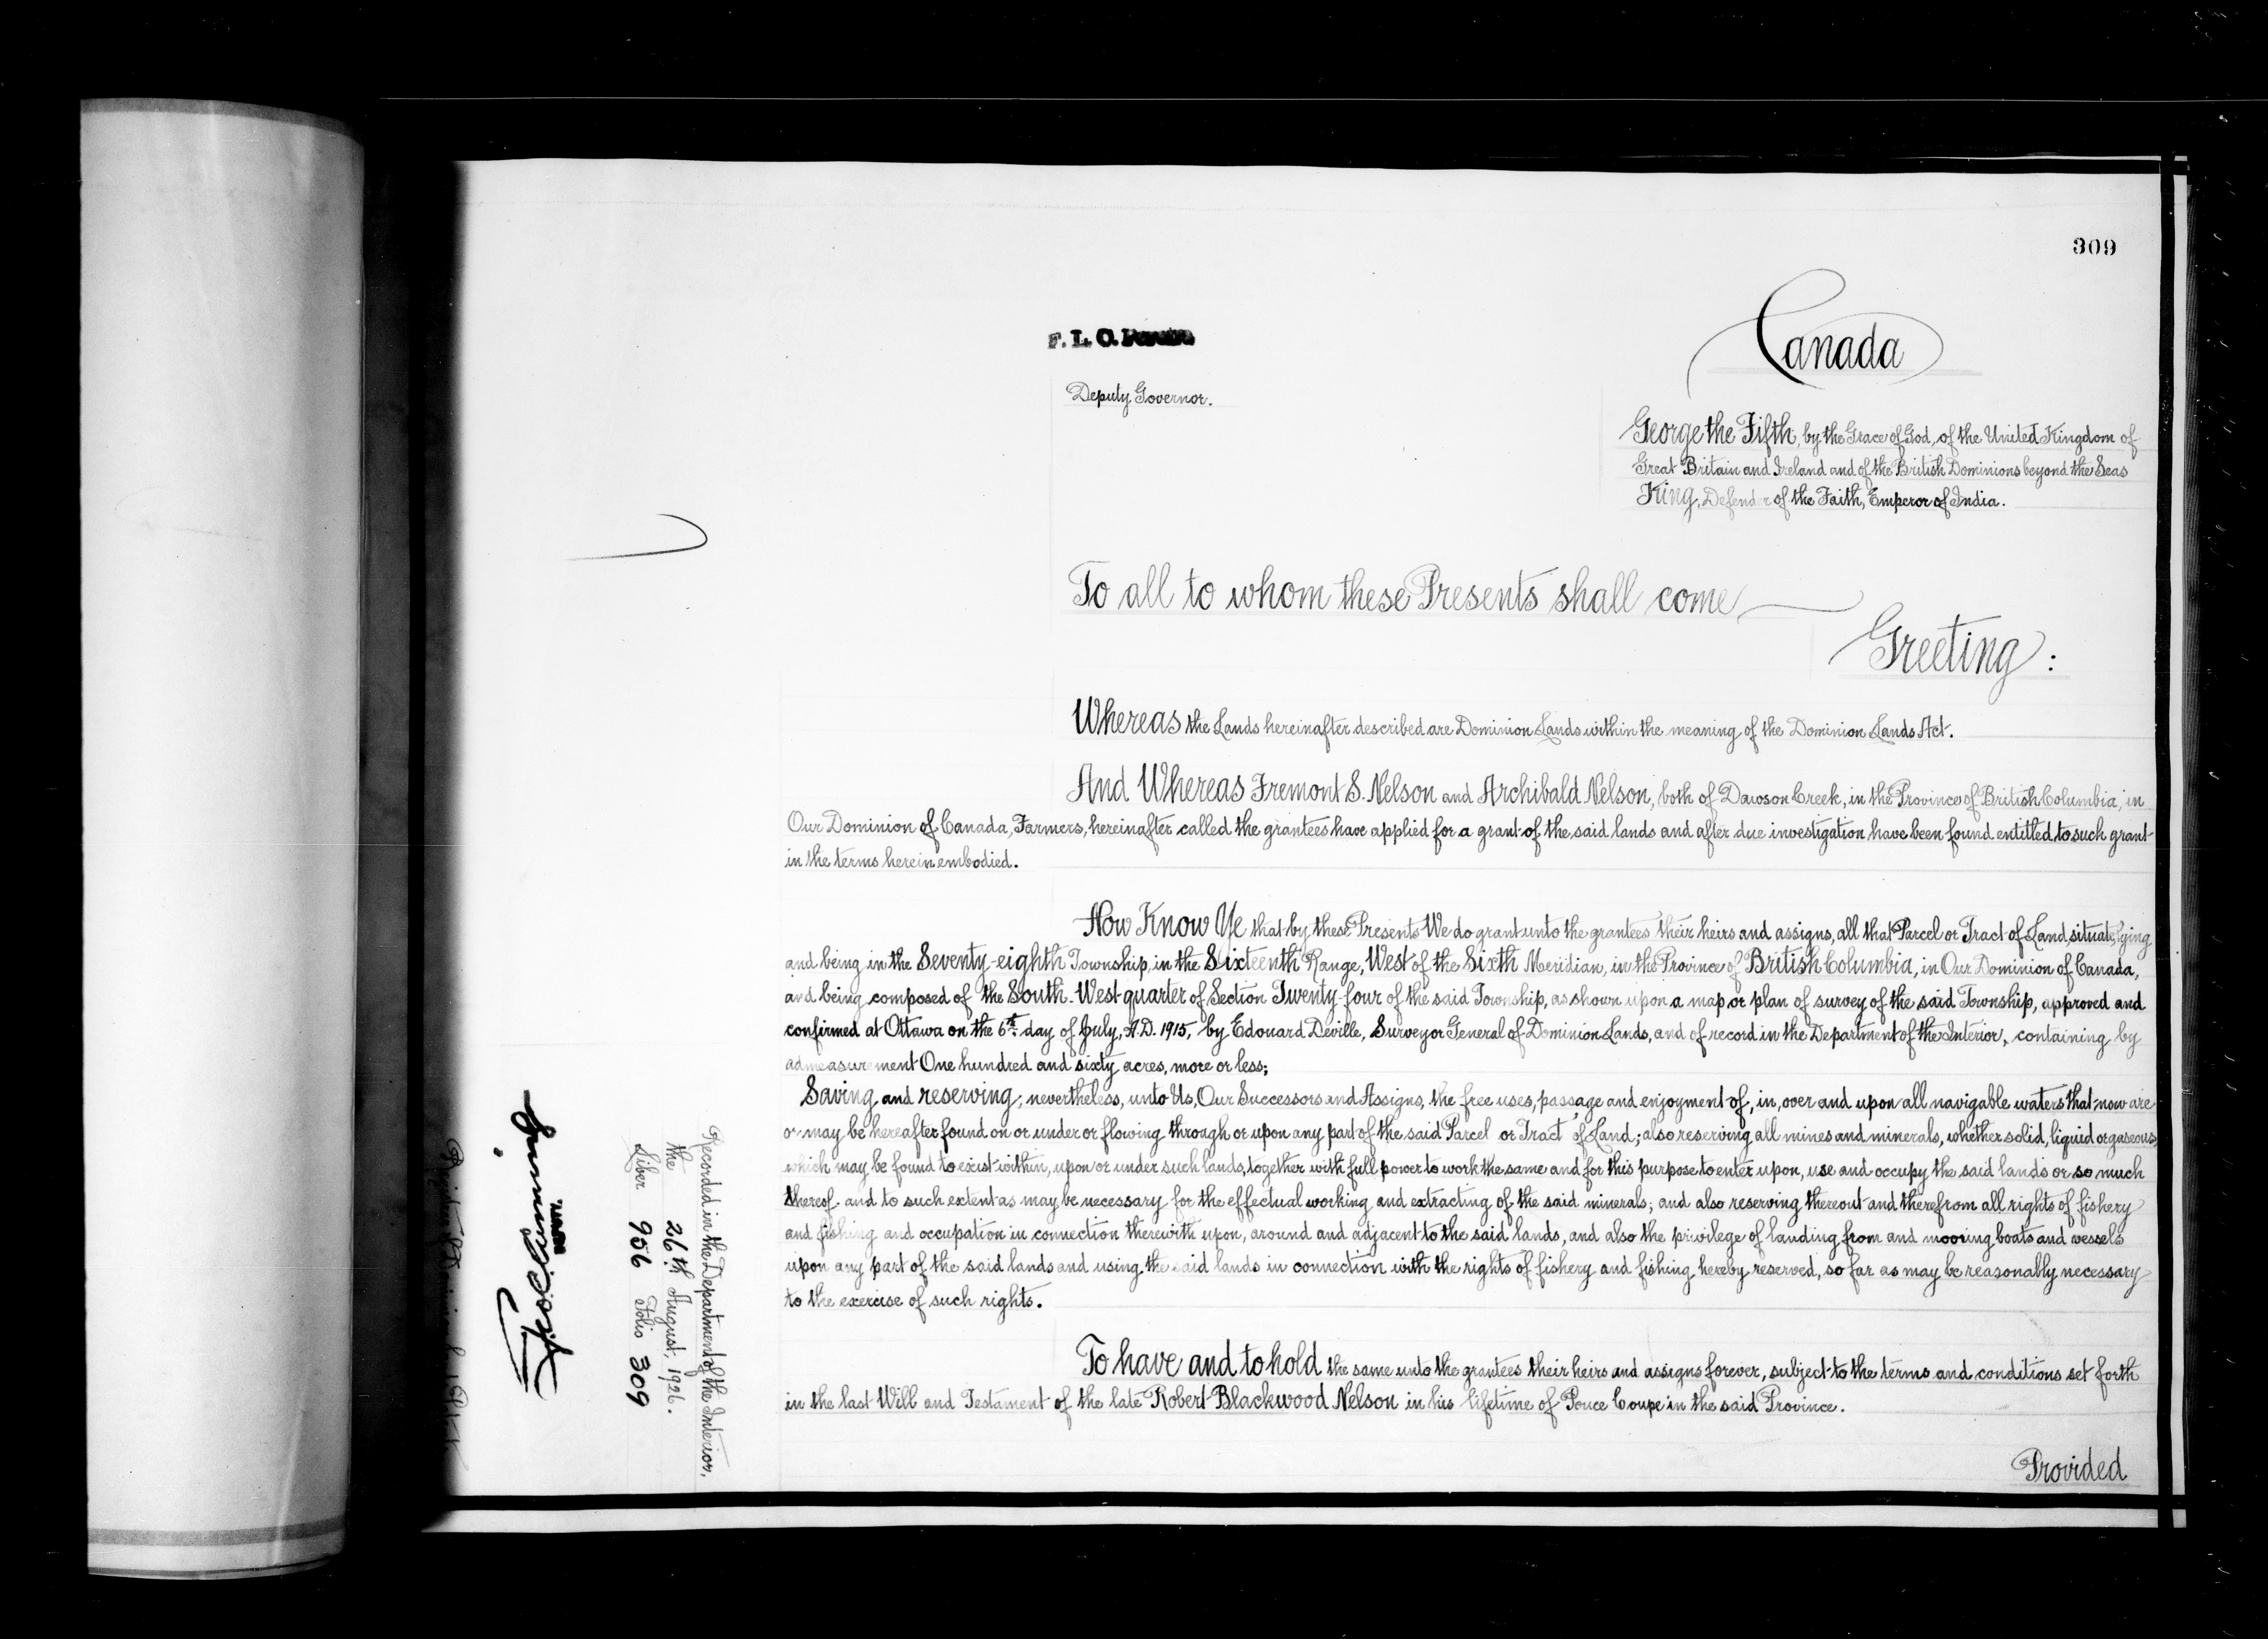 309
Canada
F. L. C.
Deputy Governor.
George the Fifth, by the Grace of God, of the United Kingdom of
Great Britain and Ireland and of the British Dominions beyond the Seas
King, Defender of the Faith, Emperor of India.
To all to whom these Presents shall come
Greeting:
Whereas the Lands hereinafter described are Dominion Lands within the meaning of the Dominion Lands Act.
And Whereas Fremont S. Nelson and Archibald Nelson, both of Dawson Creek, in the Province of British Columbia, in
Our Dominion of Canada, Farmers, hereinafter called the grantees have applied for a grant of the said lands and after due investigation have been found entitled to such grant
in the terms herein embodied.
Now Know Ye that by these Presents We do grant unto the grantees their heirs and assigns, all that Parcel or Tract of Land, situate, lying
and being in the Seventy-eighth Township, in the Sixteenth Range, West of the Sixth Meridian, in the Province of British Columbia, in Our Dominion of Canada,
and being composed of the South-West quarter of Section Twenty-four of the said Township, as shown upon a map or plan of survey of the said Township, approved and
confirmed at Ottawa on the 6th day of July, A.D. 1915, by Edouard Deville, Surveyor General of Dominion Lands, and of record in the Department of the Interior, containing by
admeasurement One hundred and sixty acres, more or less;
Saving and reserving, nevertheless, unto Us, Our Successors and Assigns, the free uses, passage and enjoyment of, in, over and upon all navigable waters that now are
or may be hereafter found on or under or flowing through or upon any part of the said Parcel or Tract of Land; also reserving all mines and minerals, whether solid, liquid or gaseous,
which may be found to exist within, upon or under such lands, together with full power to work the same and for this purpose to enter upon, use and occupy the said lands or so much
thereof and to such extent as may be necessary for the effectual working and extracting of the said minerals; and also reserving thereout and therefrom all rights of fishery
and fishing and occupation in connection therewith upon, around and adjacent to the said lands, and also the privilege of landing from and mooring boats and vessels
upon any part of the said lands and using the said lands in connection with the rights of fishery and fishing hereby reserved, so far as may be reasonably necessary
to the exercise of such rights.
To have and to hold the same unto the grantees their heirs and assigns forever, subject to the terms and conditions set forth
in the last Will and Testament of the late Robert Blackwood Nelson in his lifetime of Pouce Coupe in the said Province.
Provided
Recorded in the Department of the Interior,
the 26th August, 1926.
Liber 956 Folio 309